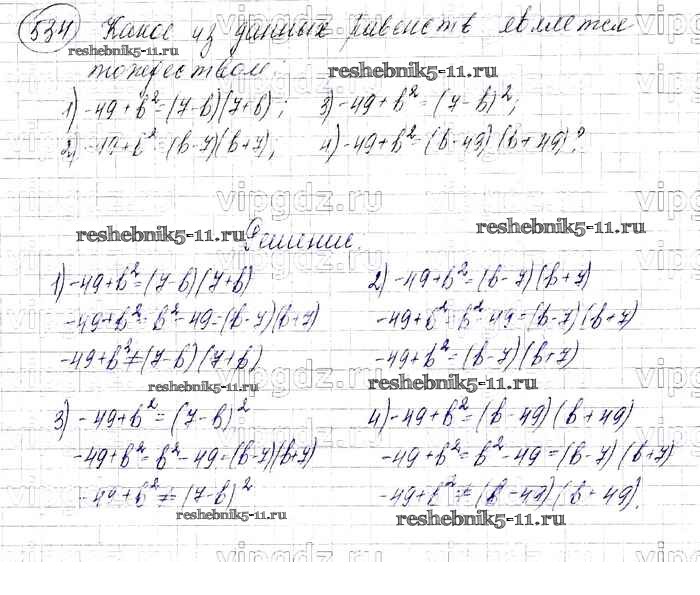 534 Какое из данных равенств является
тождеством.
1) -49+b²=(7-b)(7+b); 3) -49+b²=(7-b)²;
2) -49+b²=(b-7)(b+7); 4) -49+b²=(b-49)(b+49)?
Решение.
1) -49+b²=(7-b)(7+b) 2) -49+b²=(b-7)(b+7)
-49+b²=b²-49=(b-7)(b+7) -49+b²=b²-49=(b-7)(b+7)
-49+b²≠(7-b)(7+b) -49+b²=(b-7)(b+7)
3) -49+b²=(7-b)² 4) -49+b²=(b-49)(b+49)
-49+b²=b²-49=(b-7)(b+7) -49+b²=b²-49=(b-7)(b+7)
-49+b²≠(7-b)² -49+b²≠(b-49)(b+49).
reshebnik5-11.ru
reshebnik5-11.ru
reshebnik5-11.ru
reshebnik5-11.ru
reshebnik5-11.ru
reshebnik5-11.ru
reshebnik5-11.ru
reshebnik5-11.ru
vipgdz.ru